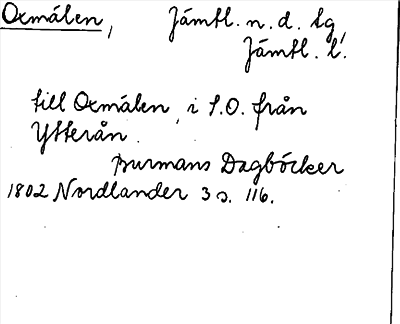 Oxmålen, Jämtl. n. d. tg,
Jämtl. l.
till Oxmålen, i S.O. från
Ytterån.
Burmans Dagböcker
1802 Nordlander 3 s. 116.